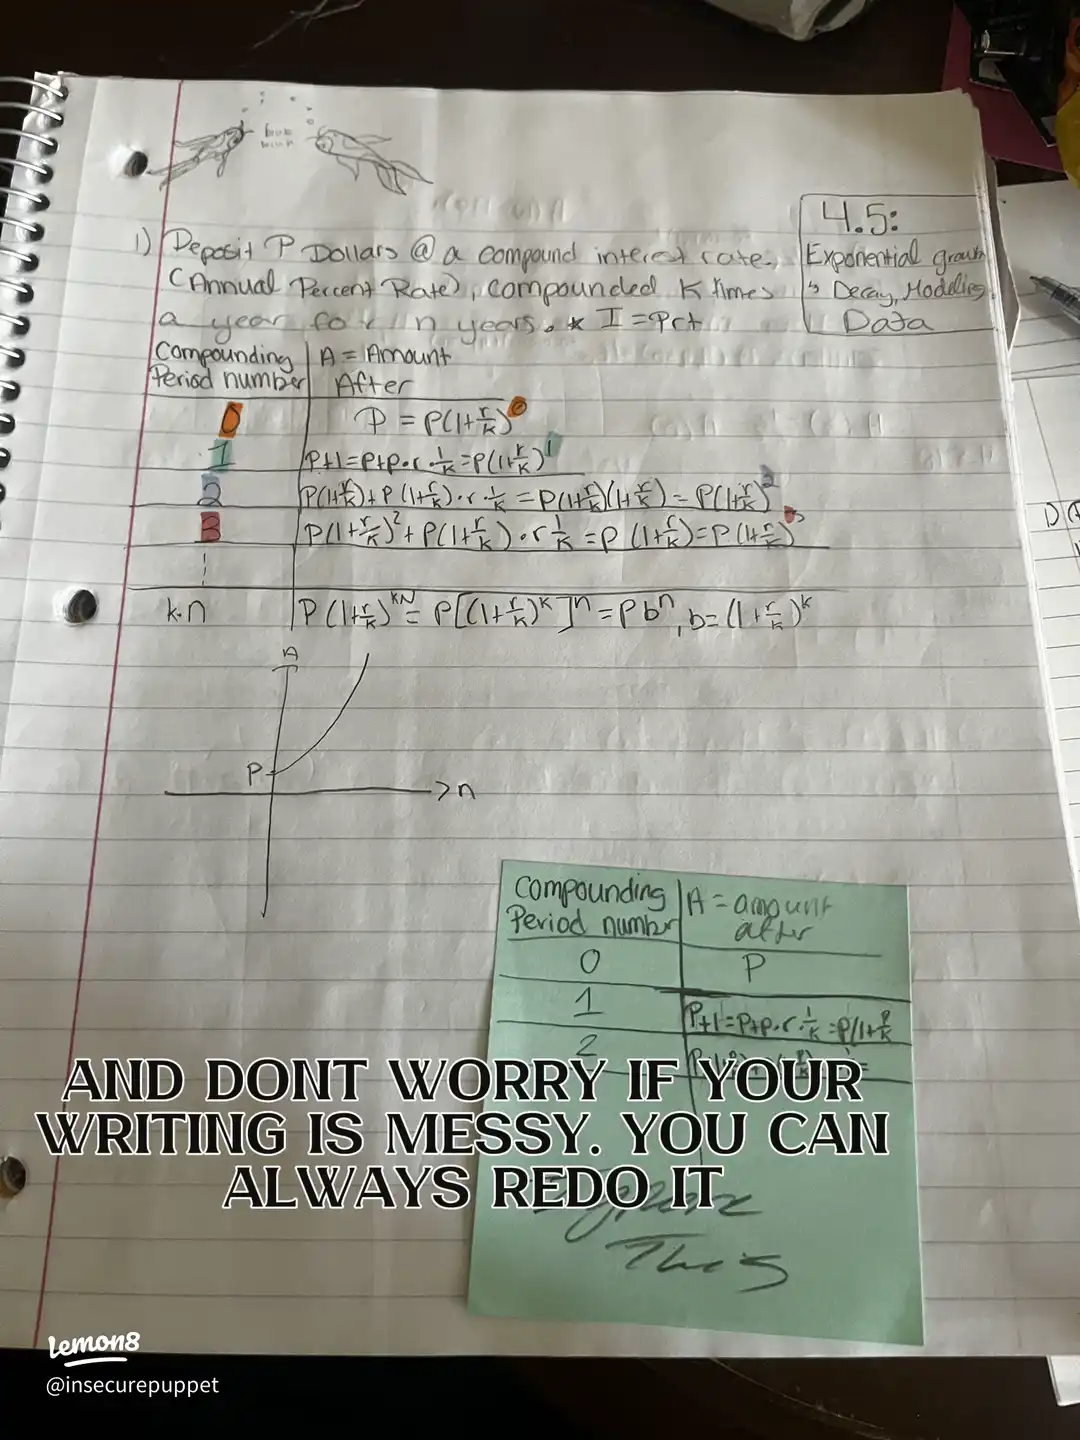 blub
blub
4.5:
Exponential growth
↳ Decay, Modeling
Data
1) Deposit P Dollars @ a compound interest rate.
(Annual Percent Rate), compounded K times
a year for n years. * I = Prt
Compounding Period number | A = Amount After
0 | P = P(1+r/k)^0
1 | P+1=P+P·r·1/k=P(1+r/k)^1
2 | P(1+r/k)+P(1+r/k)·r·1/k=P(1+r/k)(1+r/k)=P(1+r/k)^2
3 | P(1+r/k)^2+P(1+r/k)·r 1/k=P(1+r/k)=P(1+r/k)^3
k·n | P(1+r/k)^KN=P[(1+r/k)^k]^n=Pb^n, b=(1+r/k)^k
A
P
n
Compounding Period number | A = amount after
0 | P
1 | P+1=P+P·r·1/k=P(1+r/k
2
AND DONT WORRY IF YOUR
WRITING IS MESSY. YOU CAN
ALWAYS REDO IT
This
Lemon8
@insecurepuppet